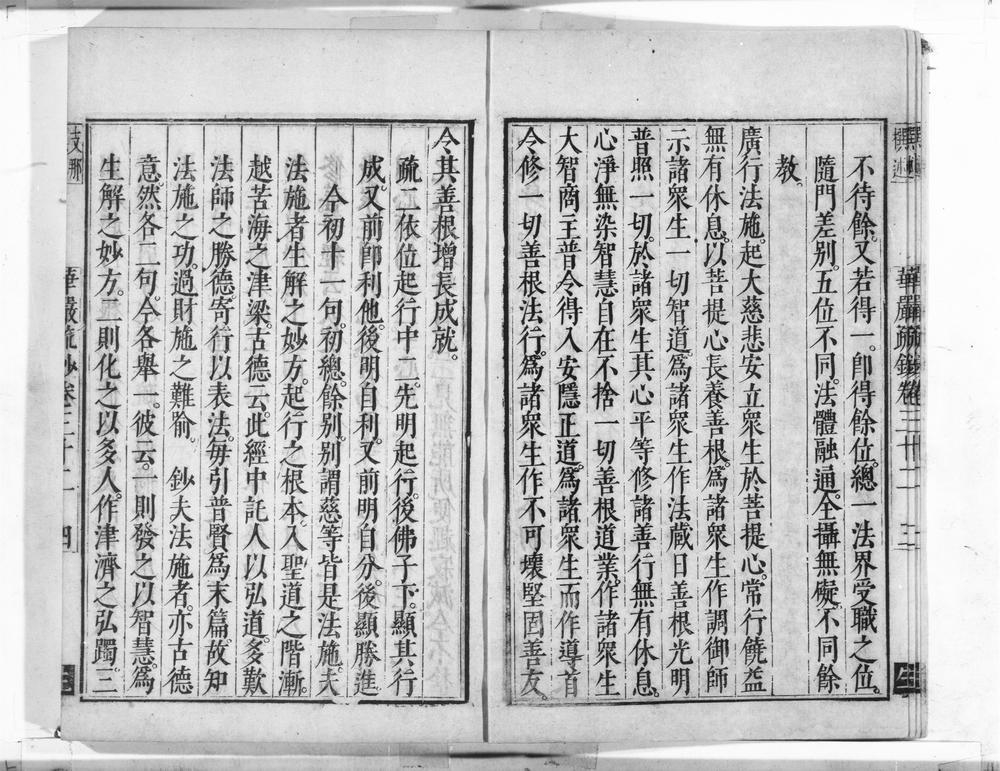 不待餘。又若得一。卽得餘位。總一法界受職之位。
隨門差別。五位不同。法體融通。全攝無礙。不同餘
教。
廣行法施。起大慈悲安立眾生於菩提心。常行饒益
無有休息。以菩提心長養善根。爲諸眾生作調御師
示諸眾生一切智道。爲諸眾生作法藏日善根光明
普照一切。於諸眾生其心平等修諸善行無有休息。
心淨無染智慧自在不捨一切善根道業。作諸眾生
大智商主普令得入安隱正道。爲諸眾生而作導首
令修一切善根法行。爲諸眾生作不可壞堅固善友。
華嚴疏鈔卷三十二 二
令其善根增長成就。
疏二依位起行中二。先明起行。後佛子下。顯其行
成。又前卽利他。後明自利。又前明自分。後顯勝進
今初十一句。初總。餘別。別謂慈等皆是法施。夫
法施者生解之妙方。起行之根本。入聖道之階漸。
越苦海之津梁。古德云。此經中託人以弘道。多歎
法師之勝德。寄行以表法。每引普賢爲末篇。故知
法施之功。過財施之難喻。 鈔夫法施者。亦古德
意。然各二句。今各舉一。彼云。一則發之以智慧。爲
生解之妙方。二則化之以多人。作津濟之弘躅。三
支那
華嚴疏鈔卷三十二 四